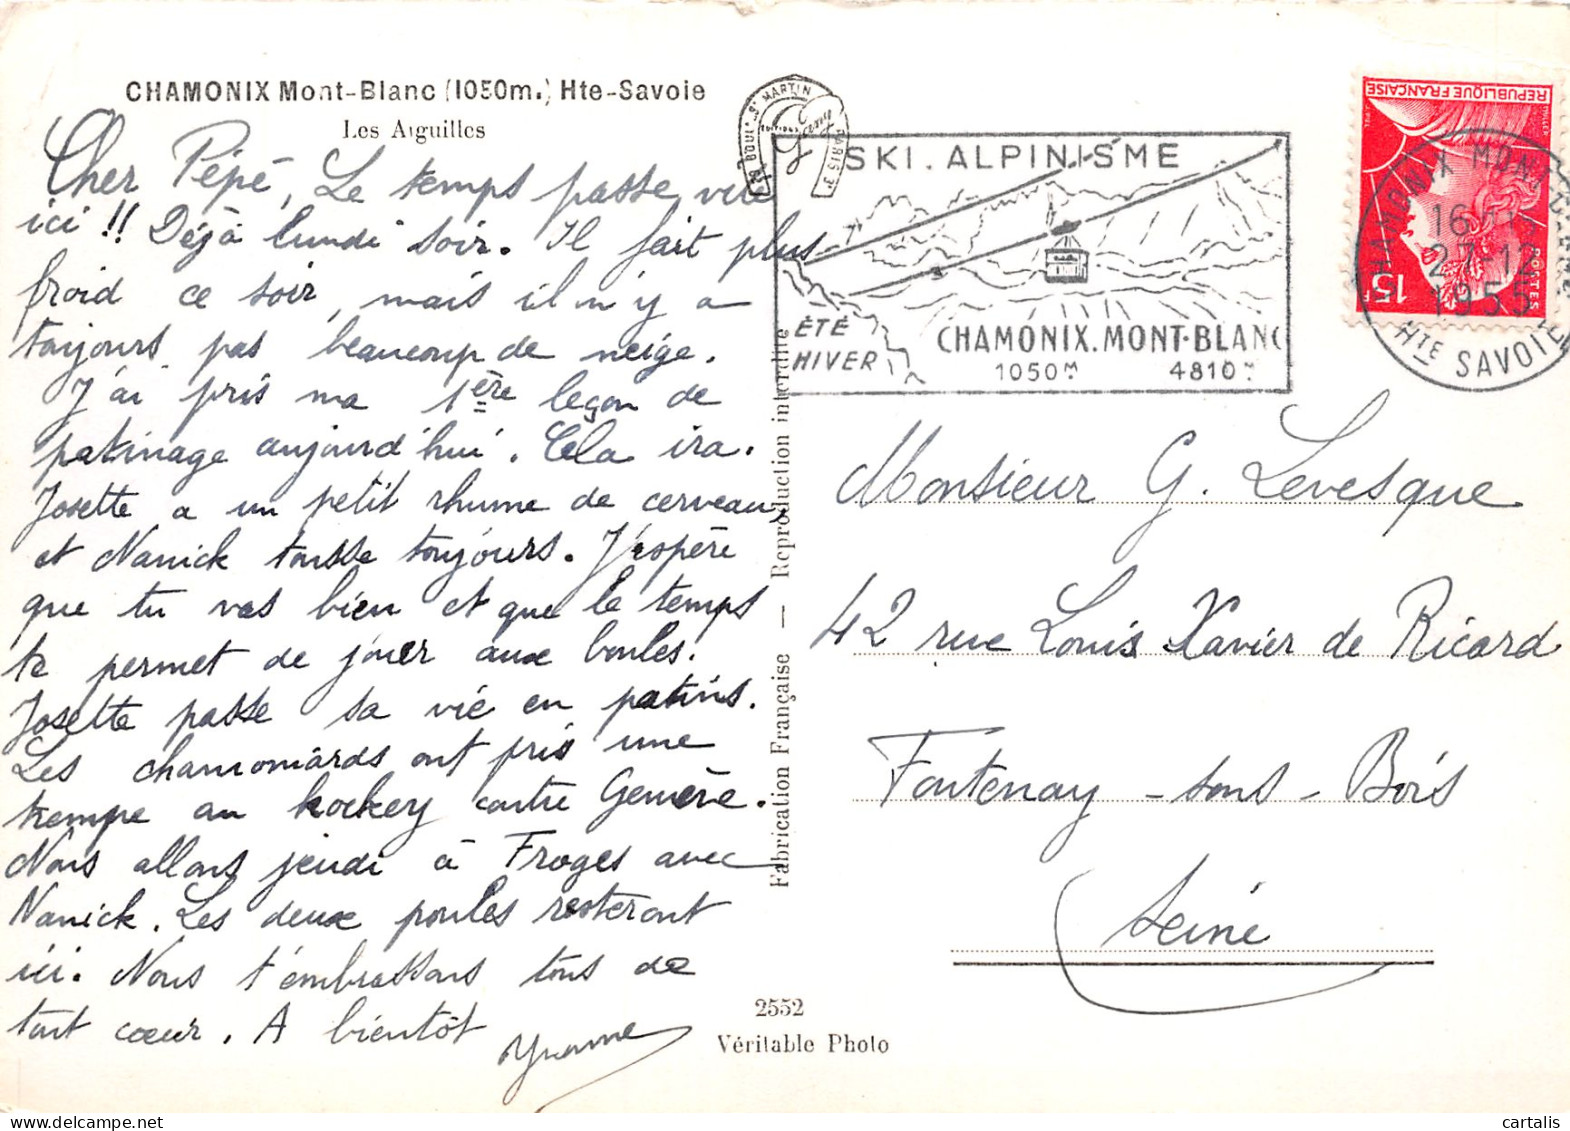 CHAMONIX Mont-Blanc (1050m.) Hte-Savoie
Les Aiguilles
Cher Pépé, Le temps passe vite
ici !! Déjà lundi soir. Il fait plus
froid ce soir, mais il n'y a
toujours pas beaucoup de neige.
J'ai pris ma 1ère leçon de
patinage aujourd'hui. Cela ira.
Josette a un petit rhume de cerveau,
et Nanick tousse toujours. J'espère
que tu vas bien et que le temps
te permet de jouer aux boules.
Josette passe sa vie en patins.
Les chamoniards ont pris une
trempe au hockey contre Genève.
Nous allons jeudi à Froges avec
Nanick. Les deux poules resteront
ici. Nous t'embrassons tous de
tout cœur. A bientôt
Yvonne
BOUL. ST MARTIN
PARIS 3e
SKI. ALPINISME
ÉTÉ
HIVER
CHAMONIX. MONT-BLANC
1050M 4810M
REPUBLIQUE FRANÇAISE
15F
POSTES
CHAMONIX MONT-BLANC
16
27-12
1955
HTE SAVOIE
Fabrication Française — Reproduction interdite
Monsieur G. Levesque
42 rue Louis Xavier de Ricard
Fontenay-sous-Bois
Seine
2552
Véritable Photo
cartalis